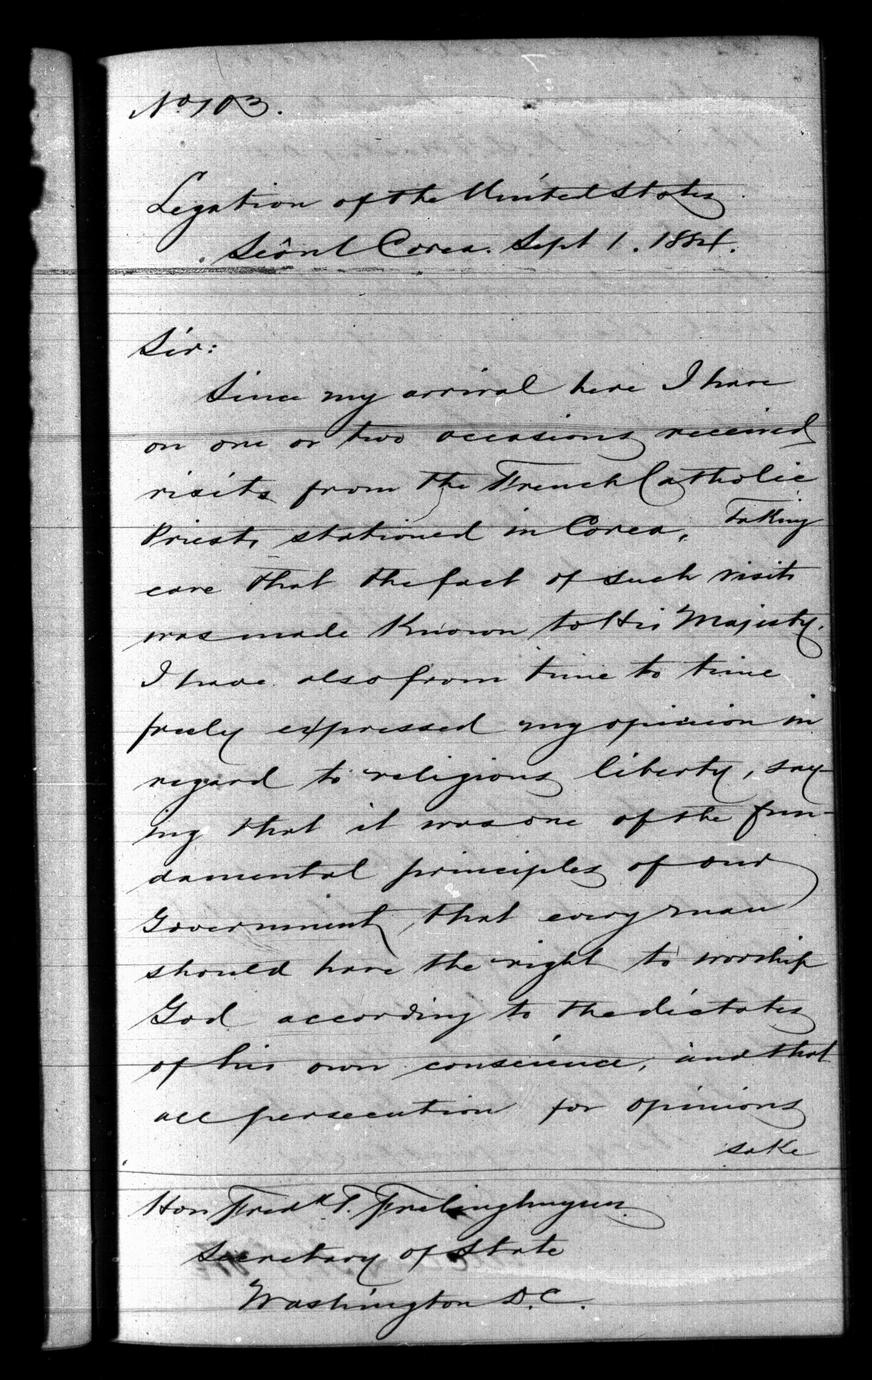 No 103.
Legation of the United States
Seôul Corea. Sept 1. 1884.
Sir:
Since my arrival here I have
on one or two occasions received
visits from the French Catholic
Priests stationed in Corea, taking
care that the fact of such visits
was made known to His Majesty.
I have also from time to time
freely expressed my opinion in
regard to religious liberty, say-
ing that it was one of the fun-
damental principles of our
Government, that every man
should have the right to worship
God according to the dictates
of his own conscience, and that
all persecution for opinions
sake
Hon Fredk T. Frelinghuysen
Secretary of State
Washington D.C.